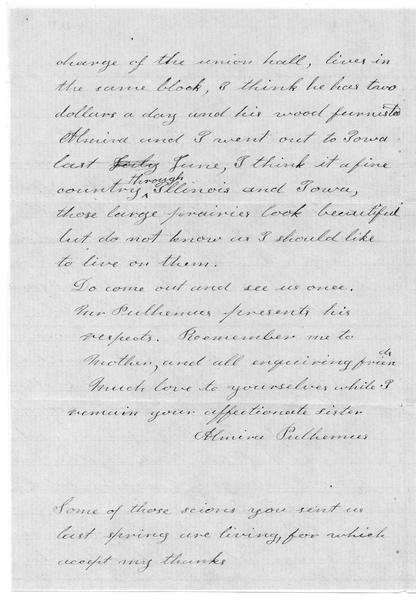 charge of the union hall, lives in
the same block, I think he has two
dollars a day and his wood furnisd
Almira and I went out to Iowa
last June, I think it a fine
country through Illinois and Iowa,
those large prairies look beautiful
but do not know as I should like
to live on them.
Do come out and see us once.
Mr Pulhemus presents his
respects. Remember me to
Mother, and all enquiring friends
Much love to yourselves while I
remain your affectionate sister
Almira Pulhemus
Some of those scions you sent us
last spring are living, for which
accept my thanks